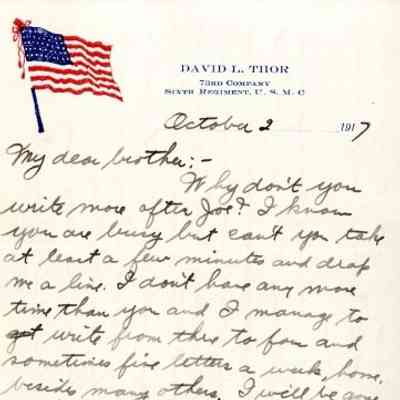 DAVID L. THOR
73RD COMPANY
SIXTH REGIMENT, U. S. M. C
October 2 1917
My dear brother:-
Why don't you
write more after Joe? I know
you are busy but can't you take
at least a few minutes and drop
me a line. I don't have any more
time than you and I manage to
get write from three to four and
sometimes five letters a week, home,
besides many others. I will be gone